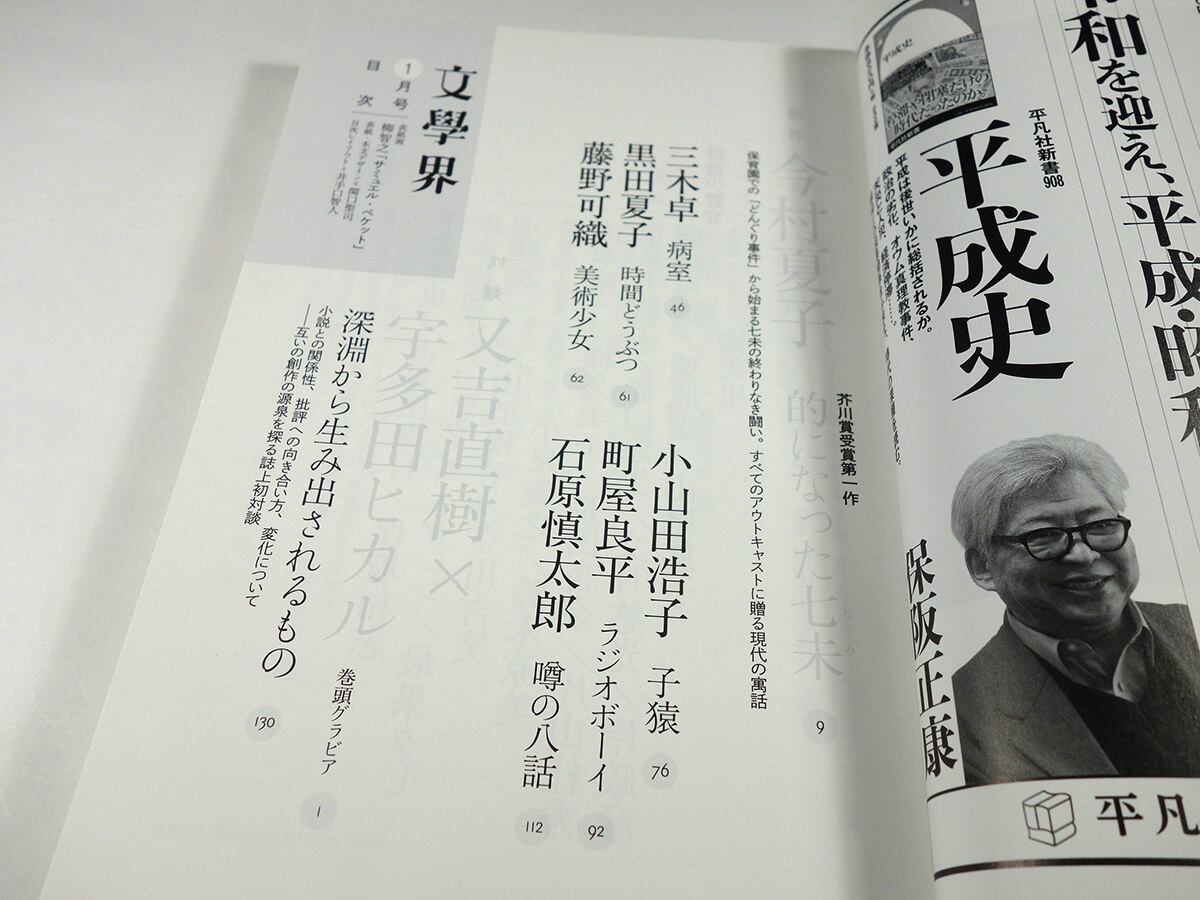 和を迎え、平成・昭和
平凡社新書
908
平成史
平成は後世いかに総括されるか。
政治の劣化、オウム真理教事件、
保阪正康
平凡
平成史
時代だったのか。
今村夏子 的になった七未
芥川賞受賞第一作
9
保育園での「どんぐり事件」から始まる七未の終わりなき闘い。すべてのアウトキャストに贈る現代の寓話
三木卓 病室 46
黒田夏子 時間どうぶつ 61
藤野可織 美術少女 62
小山田浩子 子猿 76
町屋良平 ラジオボーイ 92
石原慎太郎 噂の八話 112
対談
又吉直樹×
宇多田ヒカル
巻頭グラビア 1
深淵から生み出されるもの 130
小説との関係性、批評への向き合い方、変化について
──互いの創作の源泉を探る誌上初対談
文學界
1月号
目次
表紙画
柳智之「サミュエル・ベケット」
表紙・本文デザイン=関口聖司
目次レイアウト=井手口智人